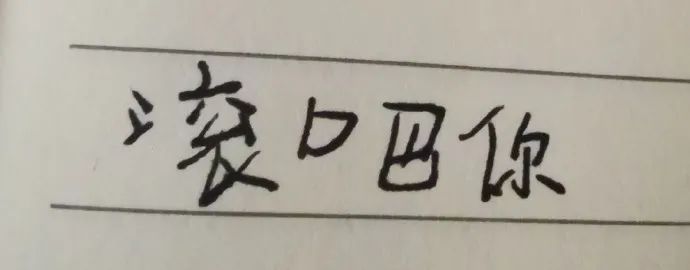 滚吧你